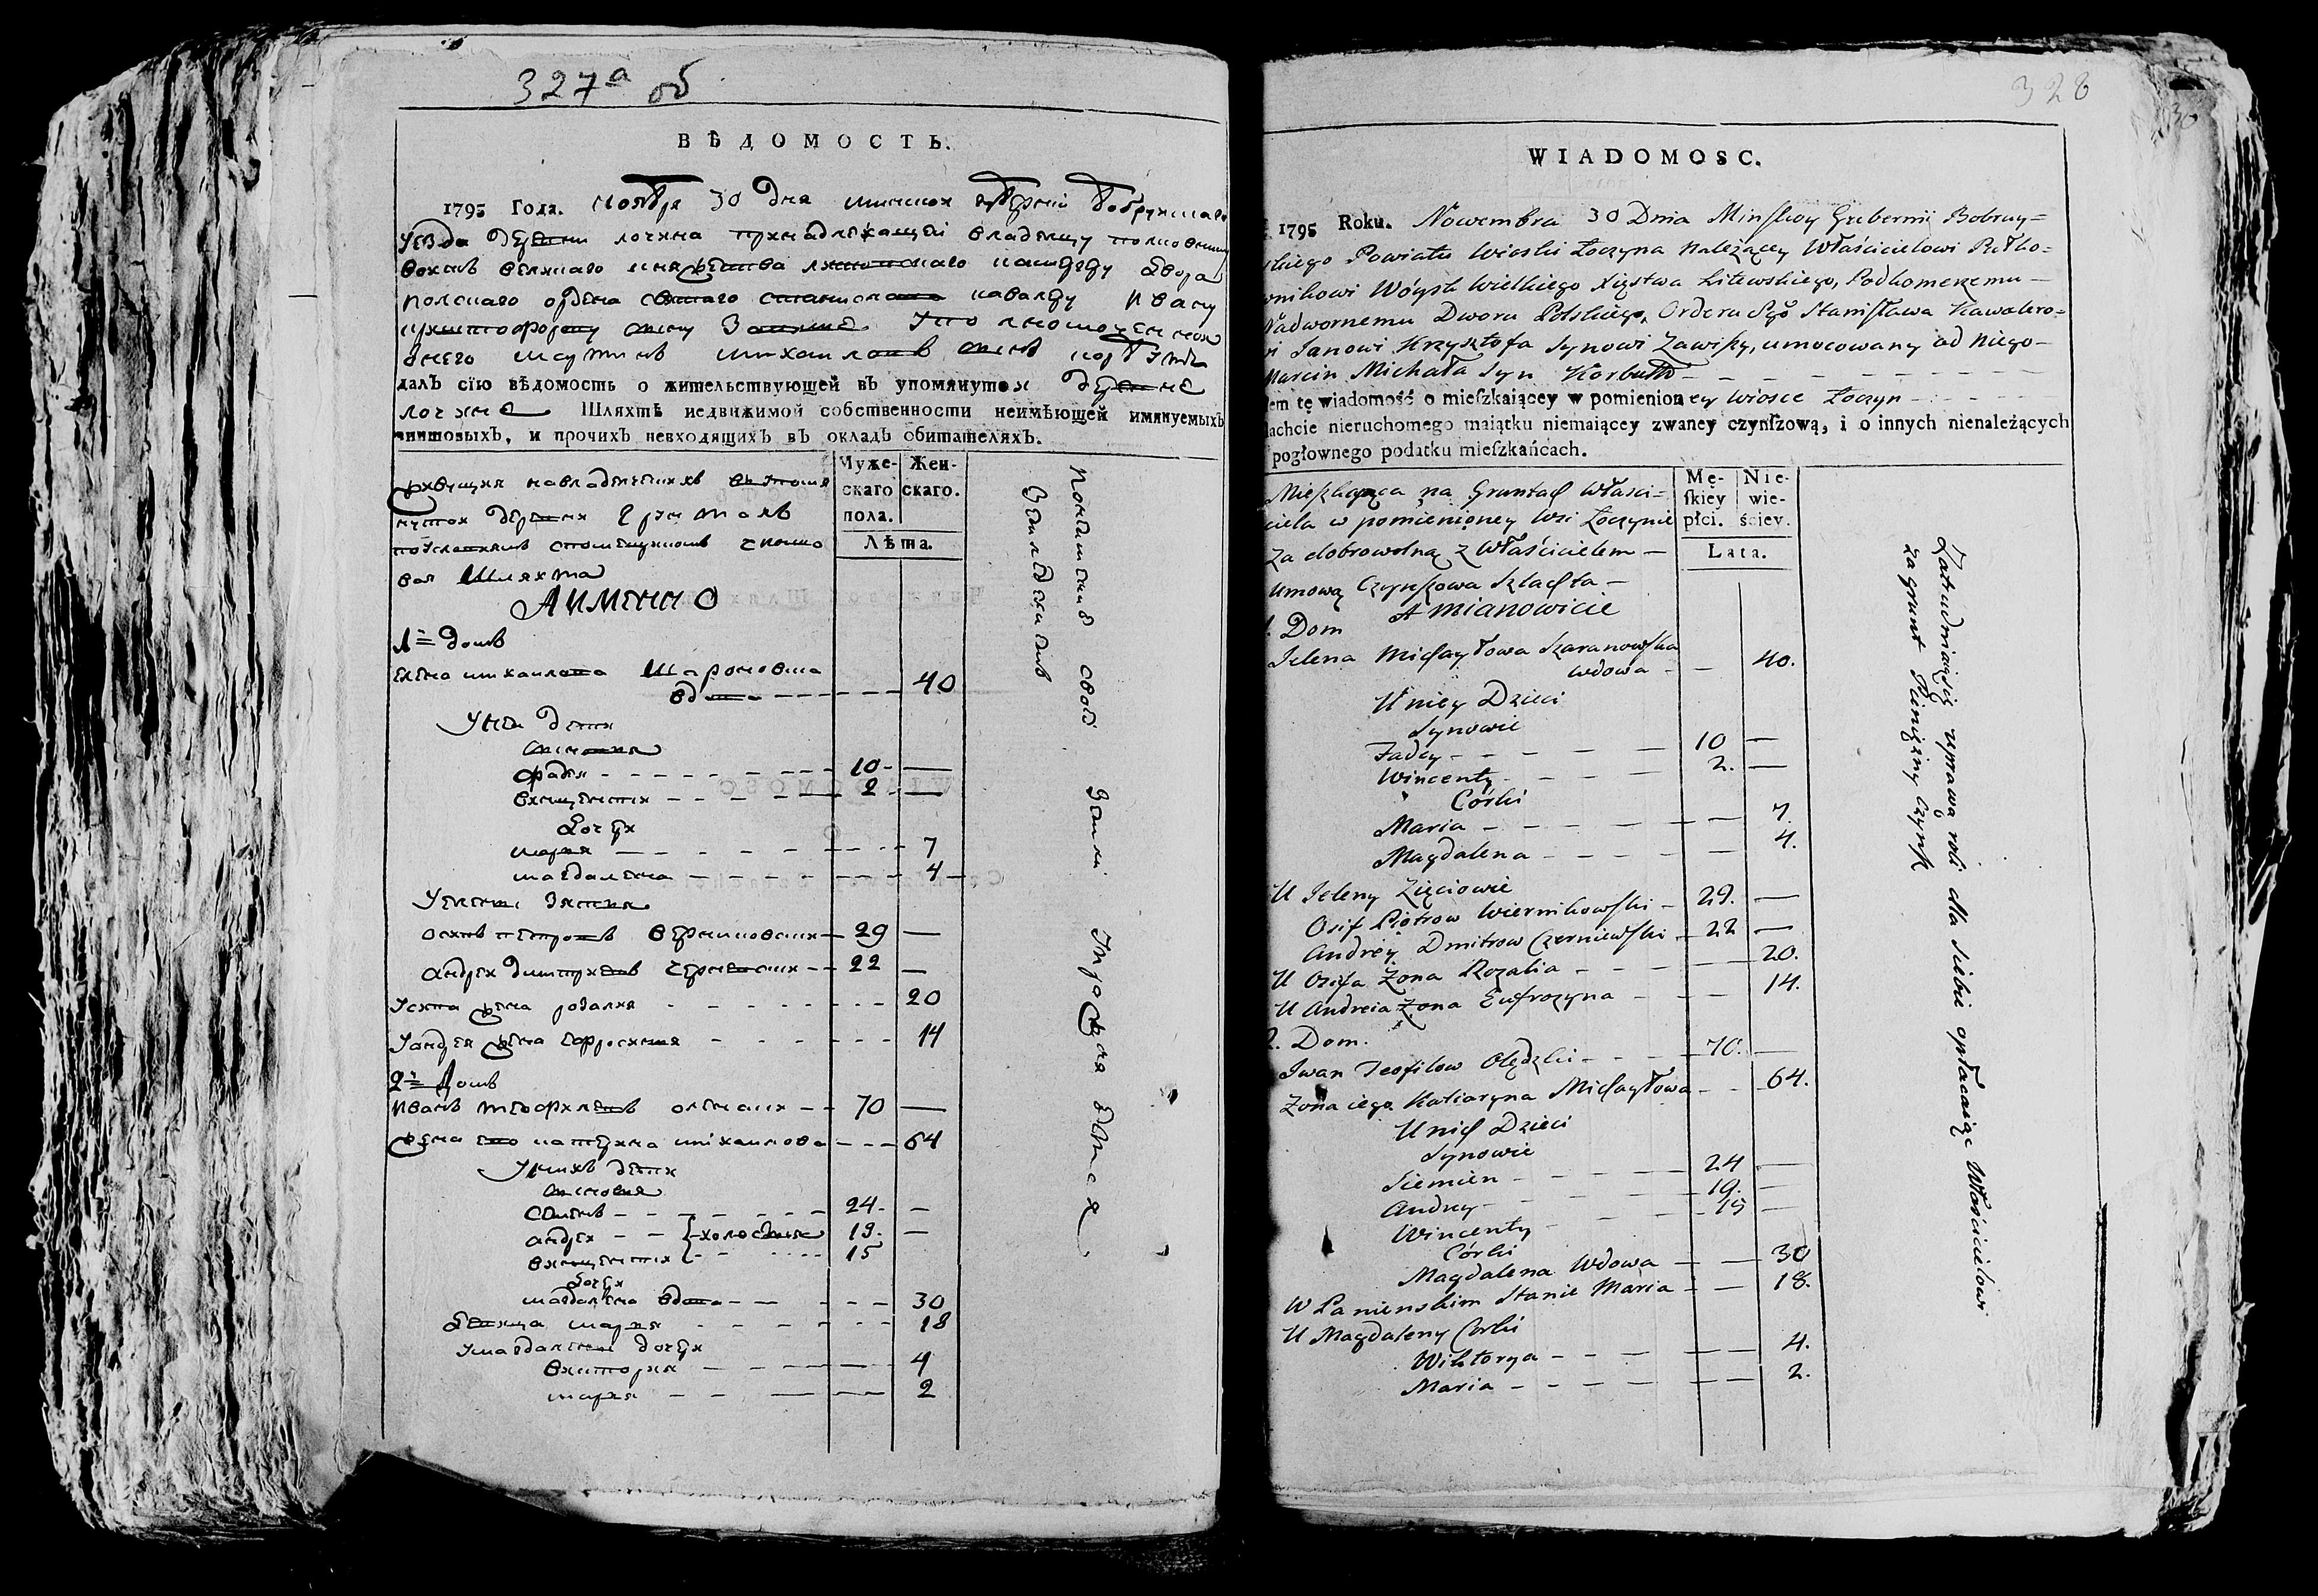 327а об
ВѢДОМОСТЬ.
1795 Года. Ноября 30 дня Минской Губернiи Бобруйскаго
Уезда деревни Лочина принадлежащей владелцу полковнику
войскъ великаго княжества литовскаго камергеру двора
полскаго ордена святаго станислава кавалеру Ивану
криштофорову сыну Завише
михаиловъ сынъ корбутъ
далъ сїю вѣдомость о жительствующей въ упомянутой деревне
лочине Шляхтѣ недвижимой собственности неимѣющей имянуемыхъ
чиншовыхъ, и прочихъ невходящихъ въ окладъ обитателяхъ.
Муже-скаго пола. Жен-скаго.
Лѣта.
живущая навладелческихъ въ упомя
нутой деревни грунтахъ
чиншо
вая шляхта
АИМЕННО
1й домъ
Елена михаилова Шароновска
вдова 40
Унея дети
сыновья
фадей 10
викентий 2
дочери
мария 7
магдалена 4
Уелены зятья
осипъ петровъ верниковский 29
андрей дмитриевъ черневский 22
Уосипа жена розалия 20
Уандрея жена ефросиния 14
2й домъ
Иванъ теофиловъ оленский 70
жена его катерина михаилова 64
Унихъ дети
сыновья
семенъ 24
андрей 19
холостые
викентий 15
дочери
магдалена вдова 30
девица мария 18
Умагдалены дочери
виктория 4
мария 2
328
30
WIADOMOSC.
1795 Roku. Nowembra 30 Dnia Minskoy Gubernii Bobruy=
skiego Powiatu Wioski Łoczyna należącey Właścicielowi Pułko=
wnikowi Wóysk Wielkiego Xięstwa Litewskiego, Podkomerzemu
Nadwornemu Dworu Polskiego, Orderu Sgo Stanisława Kawalero=
wi Janowi Krzysztofa Synowi Zawiszy, umocowany od niego
Marcin Michała Syn Korbutt
em tę wiadomość o mieſzkaiącey w pomienioney Wiosce Łoczyn
lachcie nieruchomego maiątku niemaiącey zwaney czynſzową, i o innych nienależących
pogłownego podatku mieſzkańcach.
Mę-ſkiey płci. Nie-wie-ściey.
Lata.
Mieszkaiąca na Gruntach Właści=
ciela w pomienioney Wsi Łoczynie
za dobrowolną z Właścicielem
umową Czynszowa Szlachta
A mianowicie
1. Dom
Jelena Michayłowa Szaranowska
wdowa 40.
U niey Dzieci
Synowie
Fadey 10
Wincenty 2.
Córki
Maria 7.
Magdalena 4.
U Jeleny Zięciowie
Osif Piotrow Wiernikowski 29.
Andrey Dmitrow Czerniewski 22
U Osifa Żona Rozalia 20.
U Andreia Żona Eufrozyna 14.
2. Dom.
Iwan Teofilow Olędzki 70.
Żona iego Katiaryna Michayłowa 64.
U nich Dzieci
Synowie
Siemien 24
Andrey 19.
Wincenty 15
Córki
Magdalena Wdowa 30
W Panienskim Stanie Maria 18.
U Magdaleny Corki
Wiktorya 4.
Maria 2.
Zatrudniaiąsię uprawą roli dla siebie opłacaiąc Właścicielowi
za grunt Pieniężny Czynsz